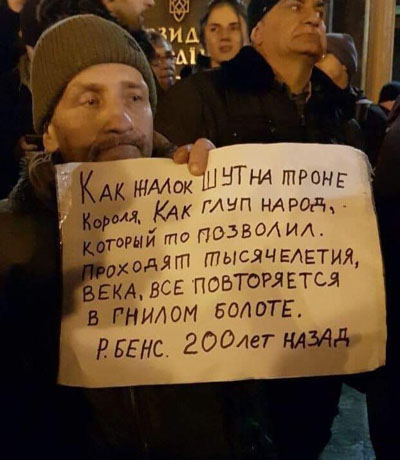 ЗИД
АЇ
КАК ЖАЛОК ШУТ НА ТРОНЕ
КОРОЛЯ, КАК ГЛУП НАРОД,
КОТОРЫЙ ТО ПОЗВОЛИЛ.
ПРОХОДЯТ ТЫСЯЧЕЛЕТИЯ,
ВЕКА, ВСЕ ПОВТОРЯЕТСЯ
В ГНИЛОМ БОЛОТЕ.
Р. БЕНС. 200 ЛЕТ НАЗАД